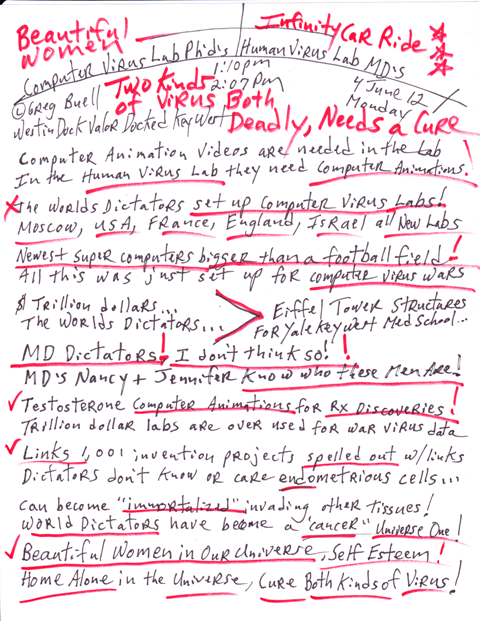 Beautiful Women
Infinity Car Ride
Computer Virus Lab Phd's | Human Virus Lab MD's
1:10pm
2:07pm
4 June 12
Monday
© Greg Buell
Westin Dock Valor Docked Key West
Two Kinds
of Virus Both
Deadly, Needs a Cure
Computer Animation Videos are needed in the Lab
In the Human Virus Lab they need Computer Animations!
The Worlds Dictators set up Computer Virus Labs!
Moscow, USA, France, England, Israel all New Labs
Newest Super computers bigger than a football field!
All this was just set up for computer virus wars
$ Trillion dollars...
The Worlds Dictators...
Eiffel Tower Structures
For Yale Key West Med School...
MD Dictators! I don't think so!!
MD's Nancy + Jennifer Know who these Men Are!
Testosterone Computer Animations for Rx Discoveries!
Trillion dollar labs are over used for war virus data
Links 1,001 invention projects spelled out w/links
Dictators don't know or care endometrious cells...
can become "immortalized" invading other tissues!
World Dictators have become a "cancer" Universe One!
Beautiful Women in Our Universe, Self Esteem!
Home Alone in the Universe, Cure Both Kinds of Virus!